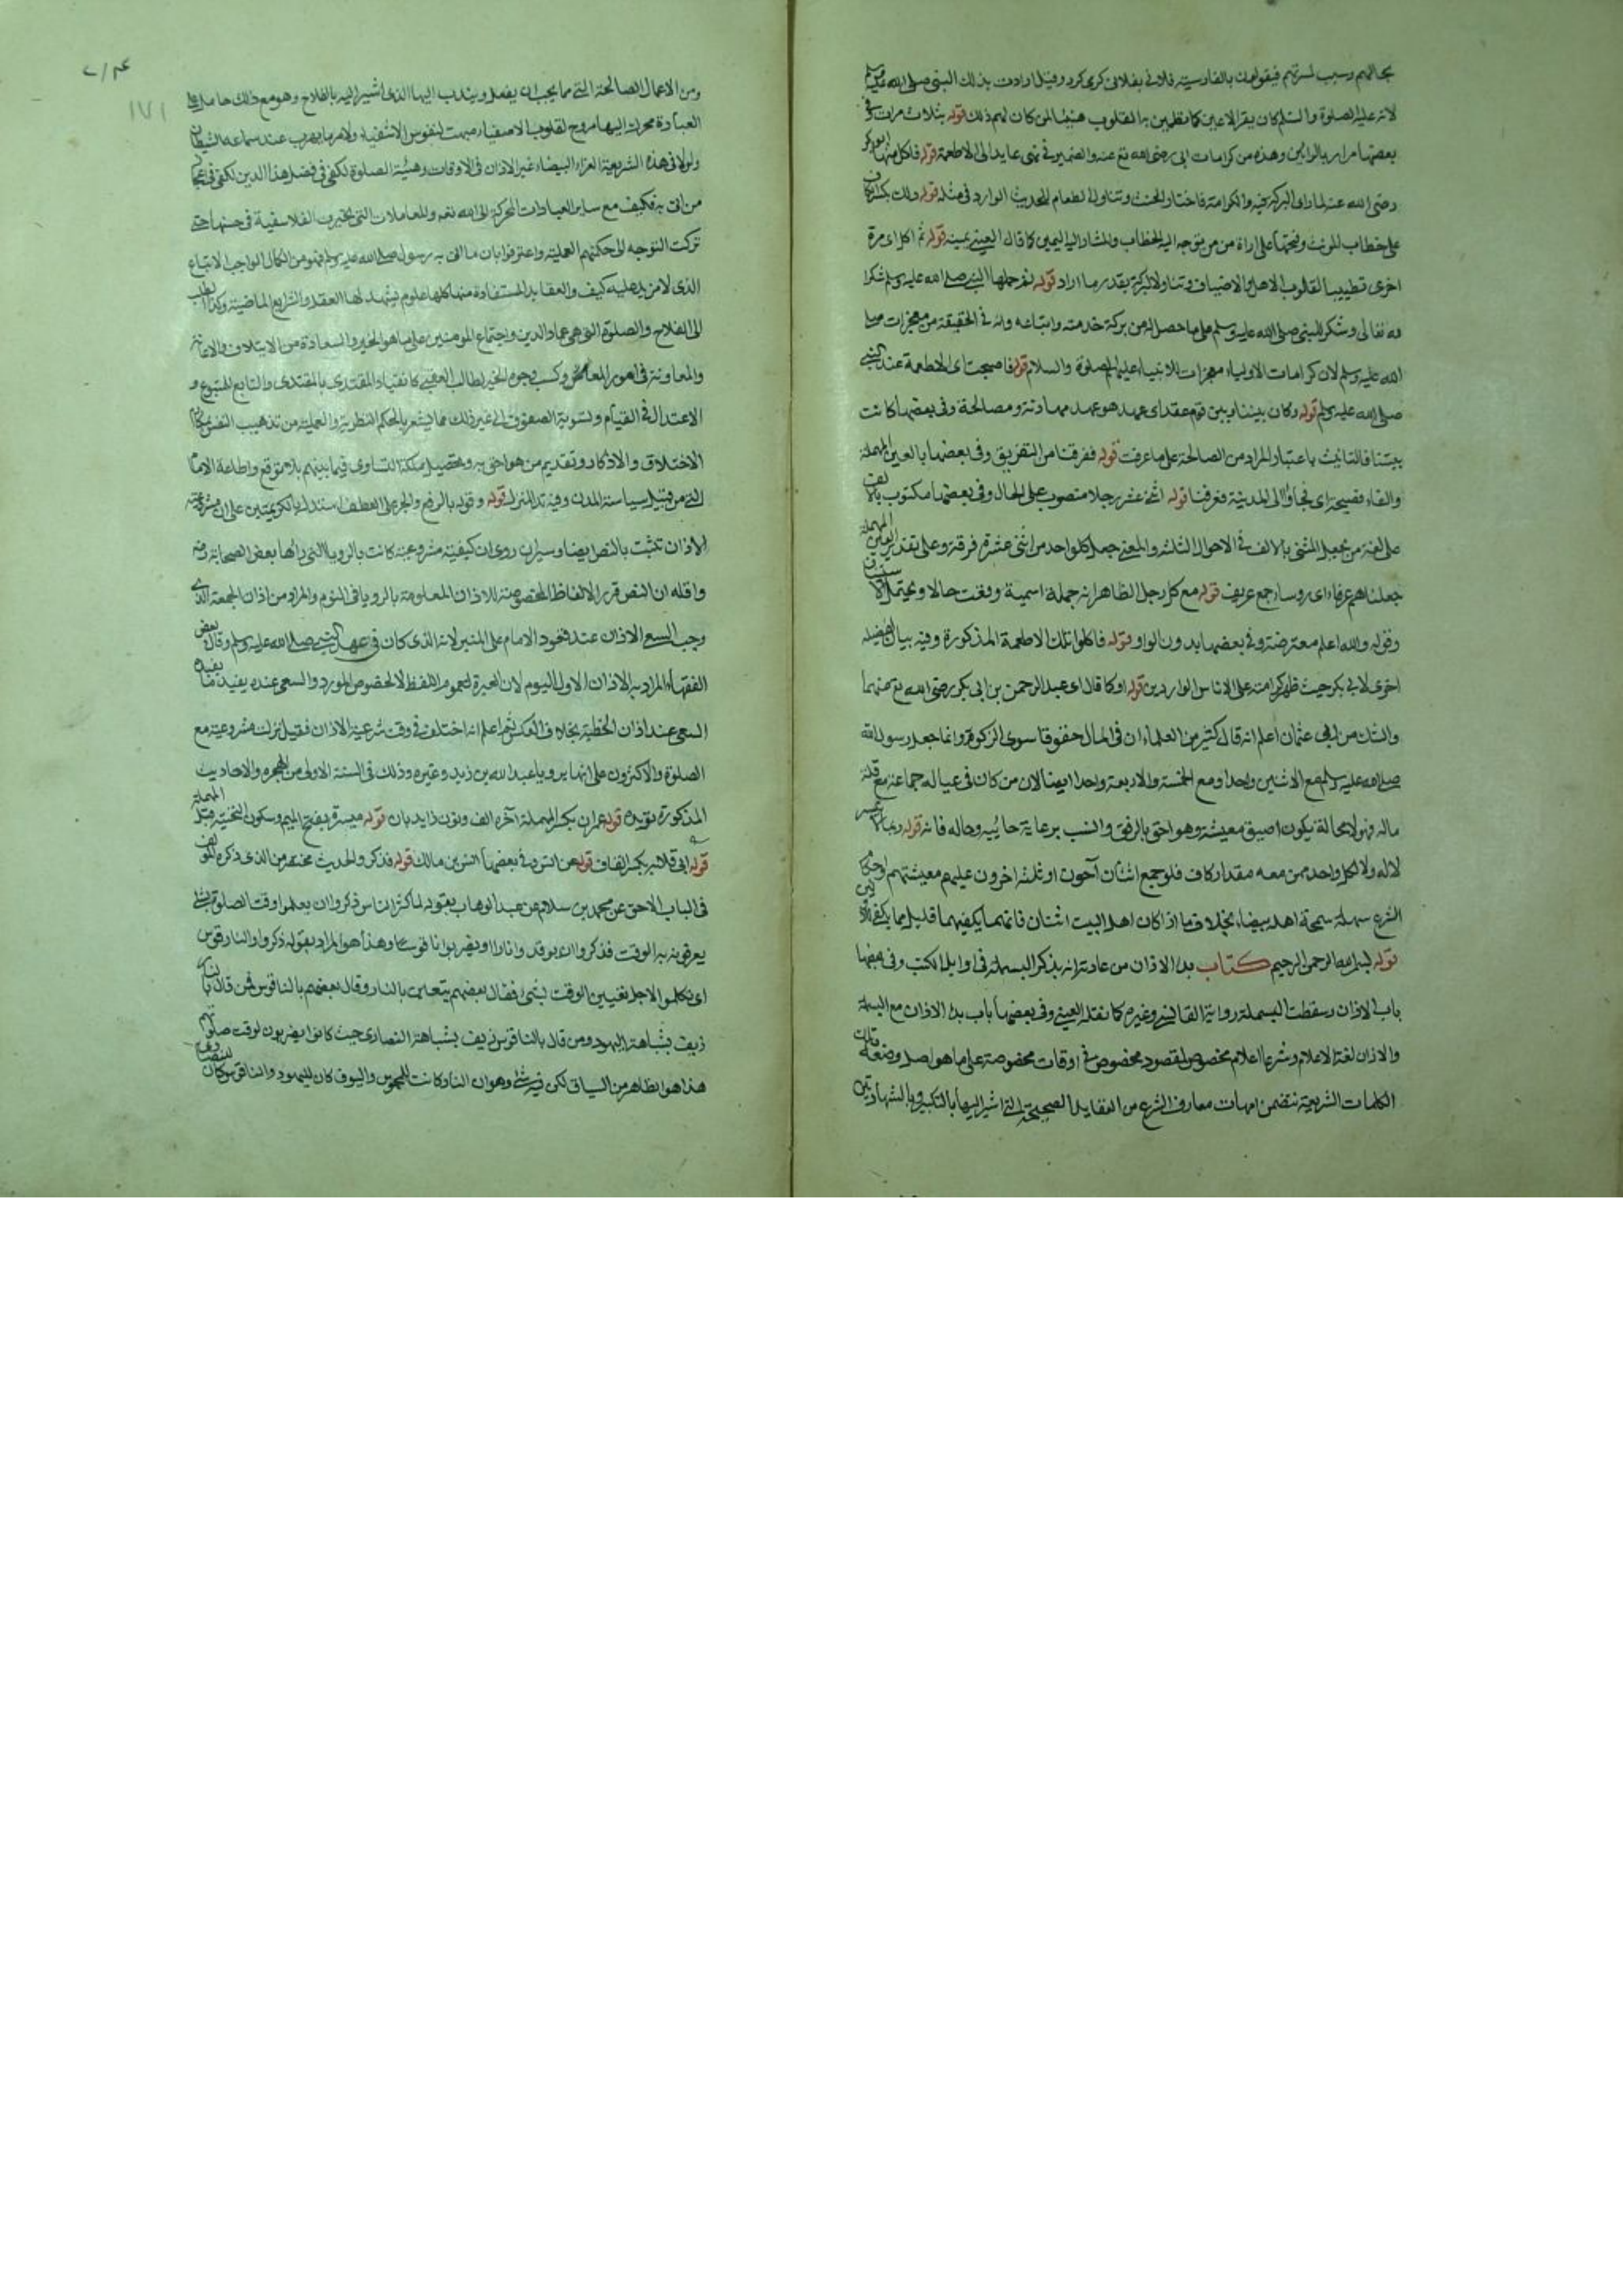 بحالهم وسبب لمسرتهم فيقولون بالفارسية فلاني بفلاني كرد وقيل ارادت بذلك النبي صلى الله عليه وسلم
لانه عليه الصلوة والسلم كان يقر الاعين كما تطمئن به القلوب هنيئا لمن كان لهم ذلك قوله بثلاث مرات وفي
بعضها مرار بدل وهذه من كرامات ابي بكر رضى الله تع عنه والضمير في عايد الى الاطعمة قوله فاكل منها ابو بكر
رضى الله عنه لما راى البركة فيه والكرامة فاختار الحنث وتناول الطعام للحديث الوارد في مثله قوله ذلك بكسر الكاف
على خطاب المونث وفتحها على ارادة من يتوجه اليه الخطاب والمشار اليه اليمين كما قال العيني يمينه قوله ثم اكل اى مرة
اخرى تطييبا لقلوب الاهل والاضياف وتناولا للبركة بقدر ما اراد قوله ثم حملها النبي صلى الله عليه وسلم شكرا
لله تعالى وشكر للنبي صلى الله عليه وسلم على ما حصل له من بركة خدمته واتباعه وانه في الحقيقة من معجزات صلى
الله عليه وسلم لان كرامات الاولياء معجزات للانبياء عليهم الصلوة والسلام قوله فاصبحت اى الاطعمة عند النبي
صلى الله عليه وسلم قوله وكان بيننا وبين قوم عقد اى عهد هو عهد مهادنة ومصالحة وفي بعضها كانت
بيننا فالتانيث باعتبار المراد من الصالحة على ما عرفت قوله ففرقنا من التفريق وفي بعضها بالعين المهملة
والفاء فصيحة اى فجاؤا الى المدينة فعرفنا قوله اثنى عشر رجلا منصوب على الحال وفي بعضها مكتوب بالالف
على لغة من يجعل المثنى بالالف في الاحوال الثلثة والمعنى جعل كل واحد من اثنى عشرة فرقة وعلى تقدير العين المهملة
جعلناهم عرفاء اى روساء جمع عريف قوله مع كل رجل الظاهر انه جملة اسمية وقعت حالا ويحتمل
وقوله والله اعلم معترضة وفي بعضها بدون الواو قوله فاكلوا تلك الاطعمة المذكورة وفيه بيان فضيلة
اخرى لابي بكر حيث ظهر كرامته على الاناس الواردين قوله او كما قال اى عبد الرحمن بن ابي بكر رضى الله تع عنهما
والشك من ابى عثمان اعلم انه قال كثير من العلماء ان في المال حقوقا سوى الزكوة وانما جعل رسول الله
صلى الله عليه وسلم مع الاثنين واحدا ومع الخمسة والاربعة واحدا ايضا لان من كان في عياله جماعة مع قلة
ماله فهو لا محالة يكون اضيق معيشة وهو احق بالرفق والنسب برعاية جانبه وحاله فانه قوله
لاله ولا لكل واحد ممن معه مقدار كاف فلو جمع اثنان آخرون او ثلثة اخرون عليهم معيشتهم
الشرع سهلة سمحة بيضاء بخلاف ما اذا كان اهل البيت اثنان فانهما يكفيهما قليل مما يكفى
قوله بسم الله الرحمن الرحيم كتاب بدء الاذان من عادته انه يذكر البسملة في اوايل الكتب وفي بعضها
باب الاذان وسقطت البسملة رواية القابسى وغيره كما نقله العيني وفي بعضها باب بدء الاذان مع البسملة
والاذان لغة الاعلام وشرعا اعلام مخصوص لمقصود مخصوص في اوقات مخصوصة على ما هو اصل وضعه
الكلمات الشريعة تتضمن امهات معارف الشرع من العقايد الصحيحة التى اشير اليها بالتكبير وبالشهادتين
١٧١
ومن الاعمال الصالحة التى مما يجب ان يفعل ويندب اليها الذى اشير اليه بالفلاح وهو مع ذلك حامل على
العبادة محرك اليها مروح لقلوب الاصفياء مبهت لنفوس الاشقياء ولامر ما يهرب عند سماعه الشيطان
ولو لا في هذه الشريعة الغراء البيضاء غير الاذان في الاوقات وهيئة الصلوة لكفى في فضل هذا الدين
من اتى به فكيف مع ساير العبادات المحركة الى الله نعم والمعاملات التى تحيرت الفلاسفة في حسنها حتى
تركت التوجه الى حكمتهم العملية واعترفوا بان ما اتى به رسول صلى الله عليه وسلم فهو من الكمال الواجب الاتباع
الذى لا مزيد عليه كيف والعقايد المستفادة منها كلها علوم يشهد لها العقل والشرايع الماضية وكذا الطلب
الى الفلاح والصلوة التى هى عماد الدين واجتماع المومنين على ما هو الخير والسعادة من الايتلاف والاعانة
والمعاونة في امور المعاش وكسب وجوه الخير لطالب العقبى كانقياد المقتدى بالمقتدى والتابع للمتبوع و
الاعتدال في القيام وتسوية الصفوف الى غير ذلك مما يشعر بالحكم النظرية والعملية من تهذيب النفس
الاختلاق والاذكار وتقديم من هو احق به وتحصيل ملكة التساوى فيما بينهم بلا توقع واطاعة الامام
التى من قبيل سياسة المدن وفيه تدالمنزل قوله و قوله بالرفع والجر على العطف استدل بالكريمتين على ان مشروعية
الاذان تثبت بالنص ايضا وسيرا روى ان كيفيته مشروعيته كانت بالرويا التى راها بعض الصحابة وفيه
واقله ان النص قرر الالفاظ المخصوصة للاذان المعلومة بالرويا في النوم والمراد من اذان الجمعة الذى
وجب السعي الاذان عند قعود الامام على المنبر لانه الذى كان في عهد النبي صلى الله عليه وسلم وقال بعض
الفقهاء المراد به الاذان الاول اليوم لان العبرة لعموم اللفظ لا لخصوص المورد والسعى عنده يفيد ما يفيده
السعى عند اذان الخطبة بخلاف العكس ثم اعلم انه اختلف في وقت شرعية الاذان فقيل نزلت مشروعيته مع
الصلوة والاكثرون على انها برويا عبد الله بن زيد وغيره وذلك في السنة الاولى من الهجرة والاحاديث
المذكورة تؤيده قوله عمران بكسر المهملة آخره الف ونون زايدتان قوله ميسرة بفتح الميم وسكون التحتية وفتح المهملة
قوله ابى قلابة بكسر القاف قوله عن انس وفي بعضها انس بن مالك قوله فذكر والحديث مختصر من الذى ذكره المولف
في الباب الاحق عن محمد بن سلام عن عبد الوهاب بقوله لما كثر الناس ذكروا ان يعلموا وقت الصلوة بشئ
يعرفونه به الوقت فذكروا ان يوقدوا نارا او يضربوا ناقوسا وهذا هو المراد بقوله ذكروا والنار قوس
اى تكلموا لاجل تعيين الوقت بشئ فقال بعضهم يتعلمون بالنار وقال بعضهم بالناقوس فمن قال بالنار
زيف بشباهة اليهود ومن قال بالناقوس زيف بشباهة النصارى حيث كانوا يضربون لوقت صلوتهم
هذا هو الظاهر من السياق لكن فيه شئ وهو ان النار كانت للمجوس والبوق كان لليهود والناقوس كان للنصارى